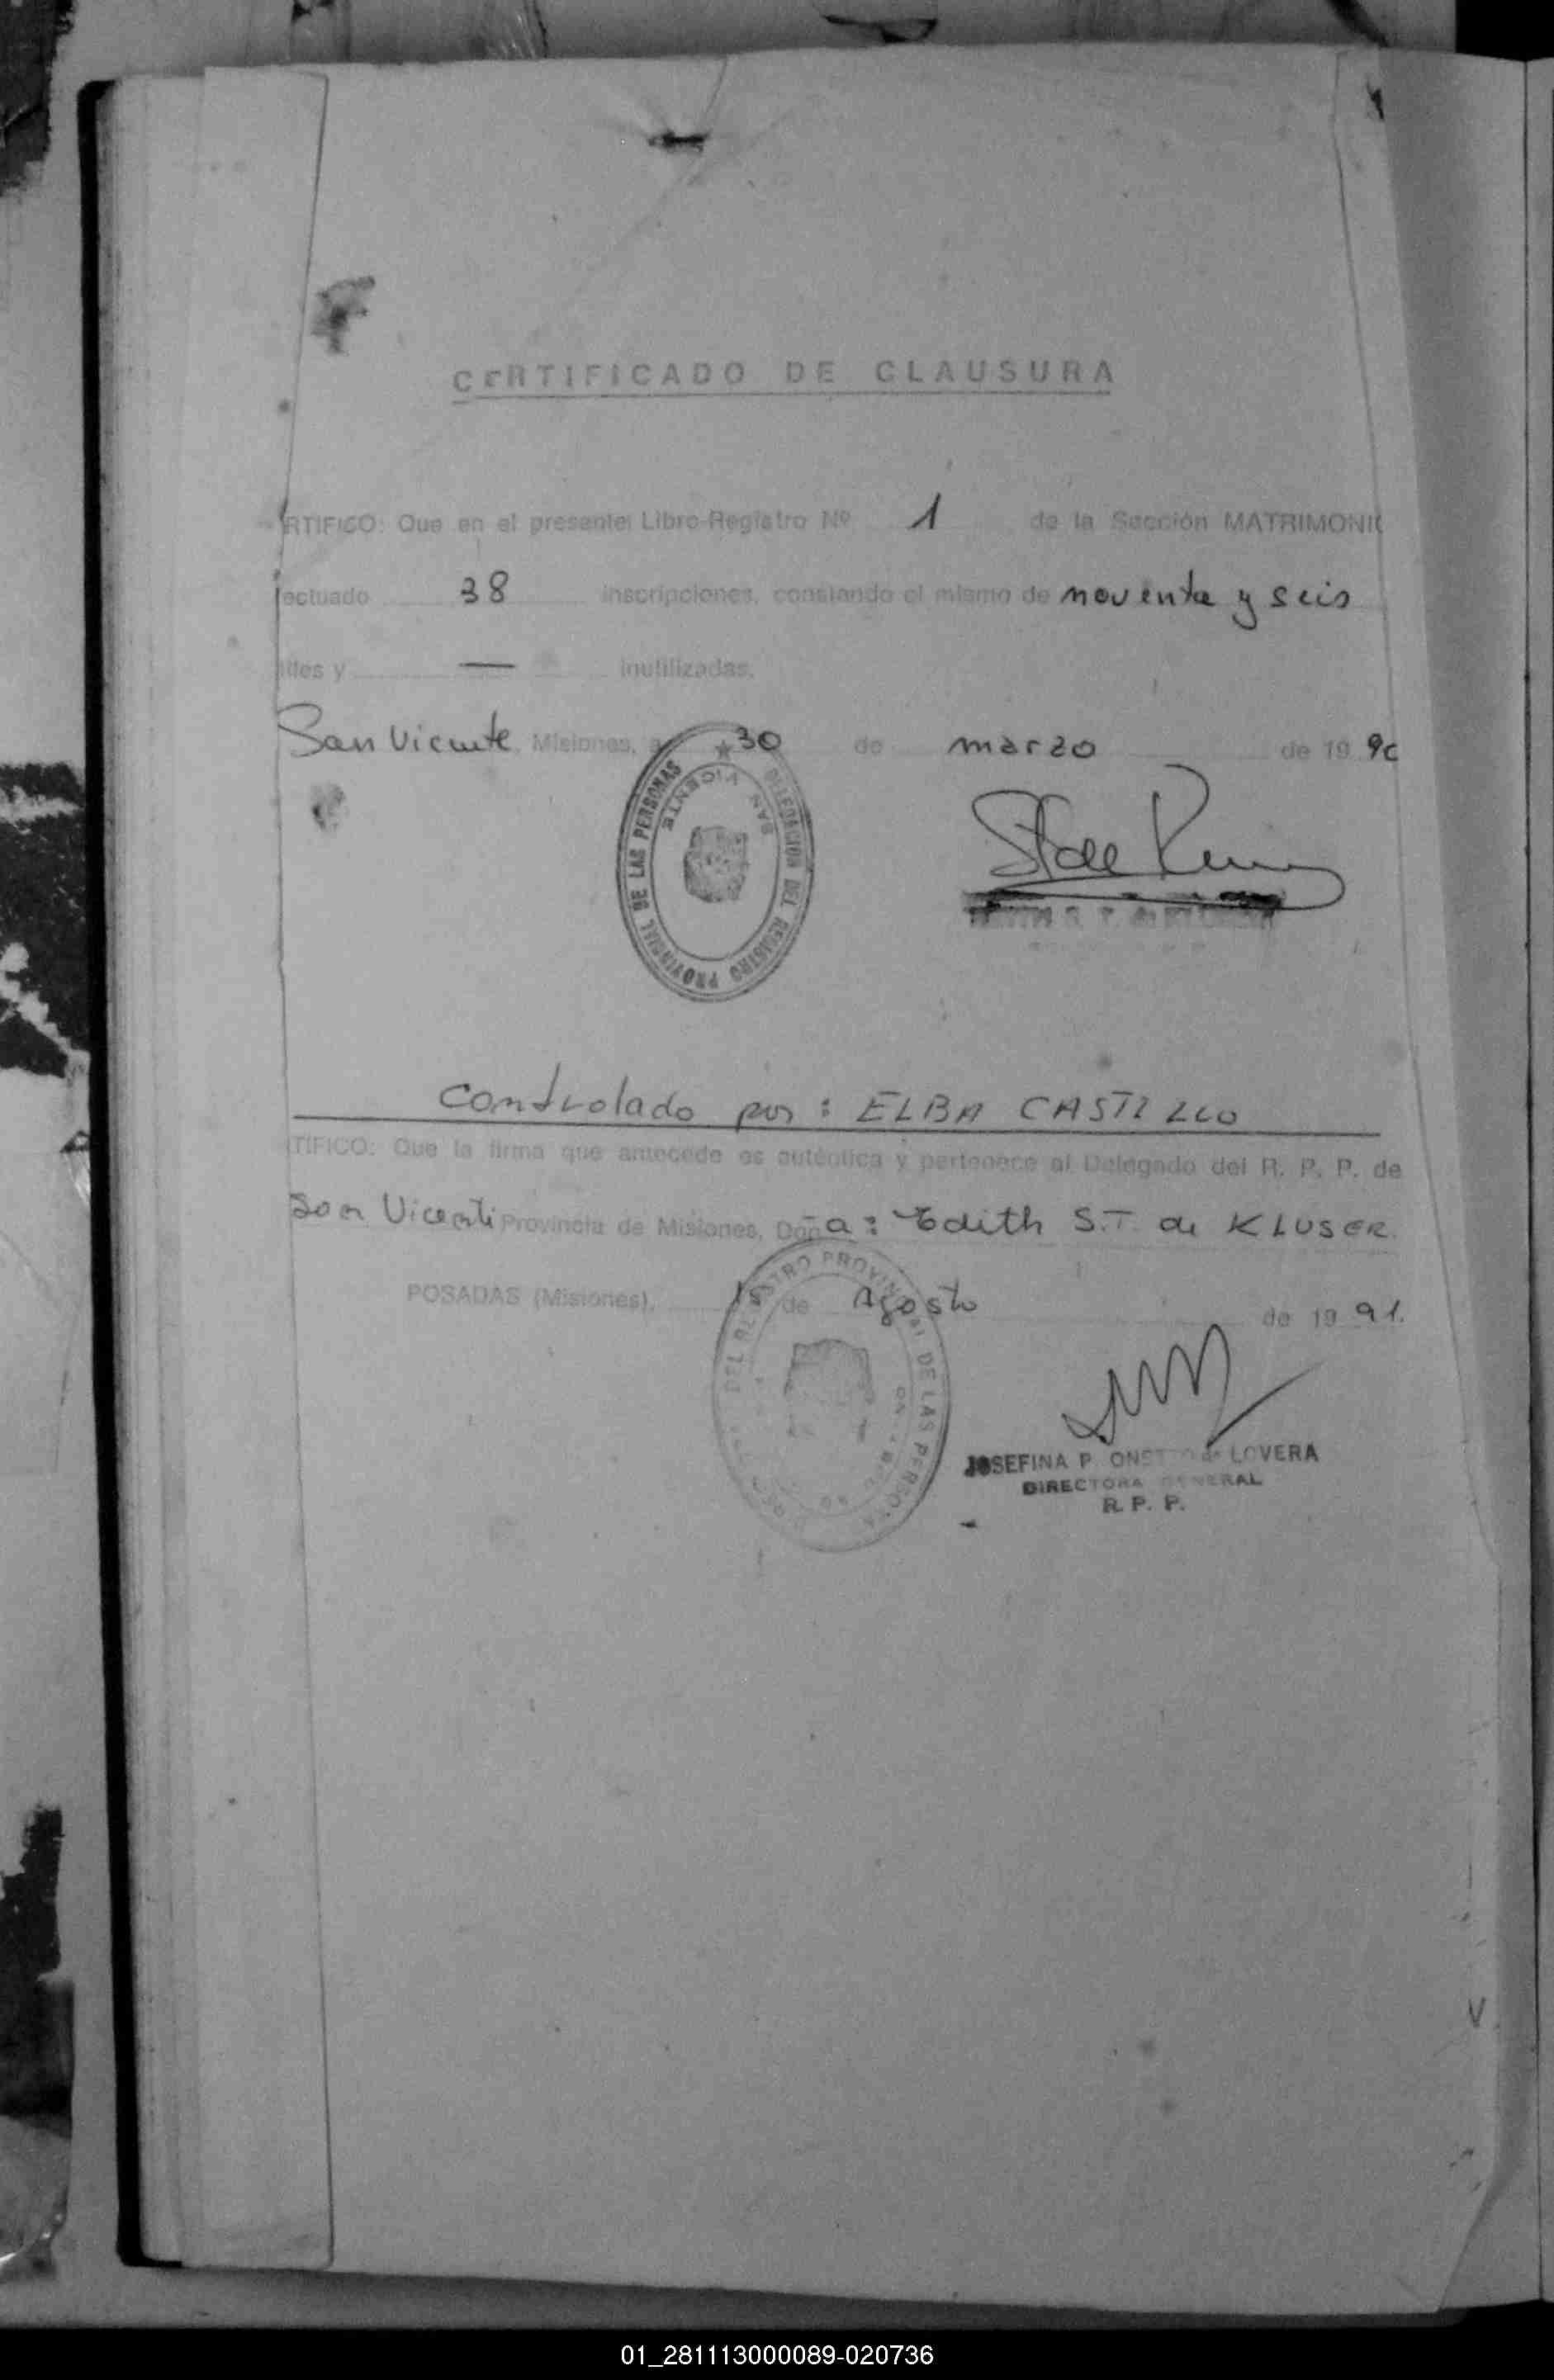 CERTIFICADO DE CLAUSURA
RTIFICO: Que en el presente Libro-Registro Nº 1 de la Sección MATRIMONI
ectuado 38 inscripciones, constando el mismo de noventa y seis
tiles y — inutilizadas.
San Vicente, Misiones, a 30 de marzo de 19 90
DELEGACION DEL REGISTRO PROVINCIAL DE LAS PERSONAS
SAN VICENTE
S. T. de
Controlado por: ELBA CASTILLO
TIFICO: Que la firma que antecede es auténtica y pertenece al Delegado del R. P. P. de
San Vicente Provincia de Misiones, Don̄a: Edith S.T. de KLUSER
POSADAS (Misiones), de Agosto de 19 91.
DEL REGISTRO PROVINCIAL DE LAS PERSONAS
JOSEFINA P. LOVERA
DIRECTORA GENERAL
R. P. P.
01_281113000089-020736